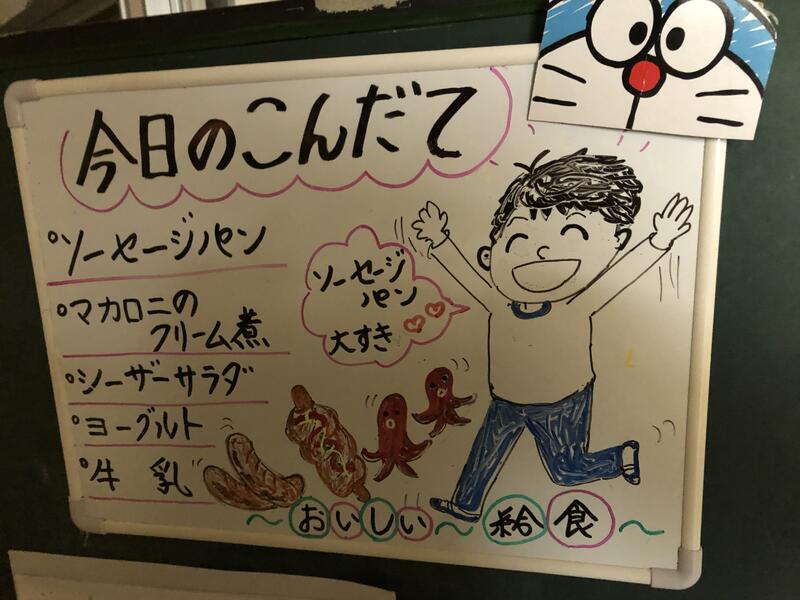 今日のこんだて
°ソーセージパン
°マカロニの
クリーム煮
°シーザーサラダ
°ヨーグルト
°牛乳
ソーセージ
パン
大すき
～おいしい～給食～